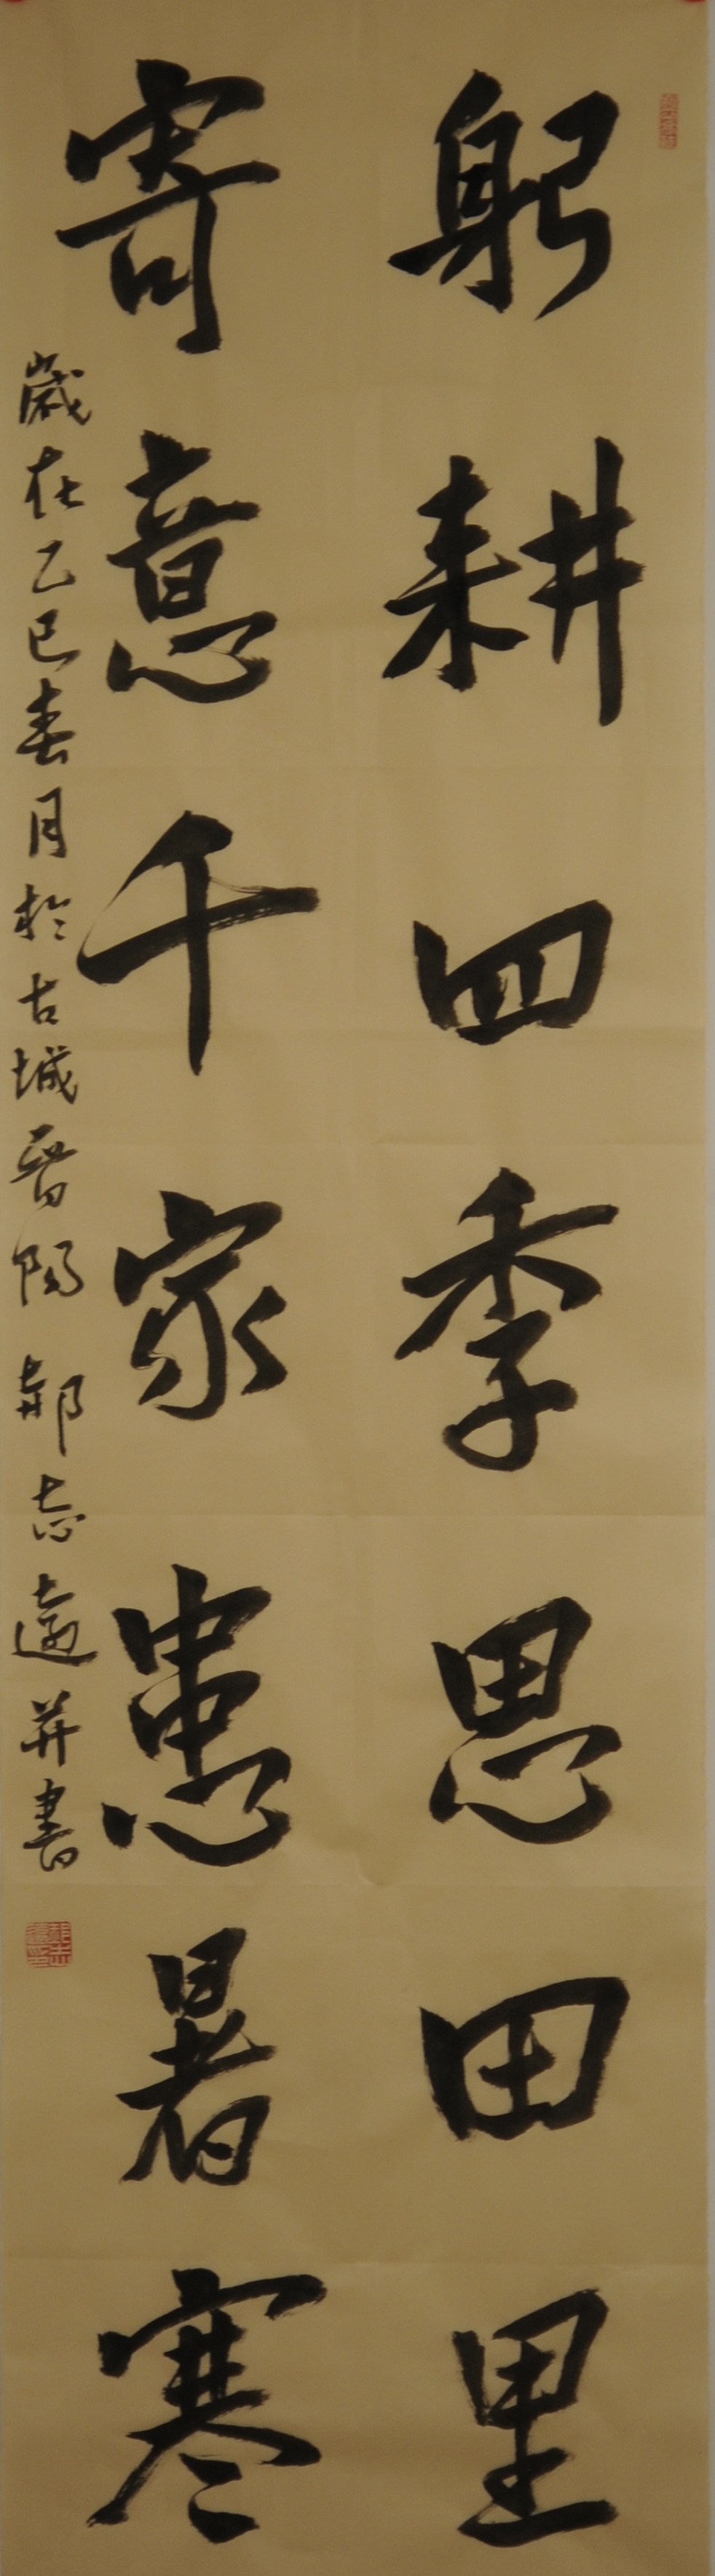 躬耕四季思田里
寄意千家患暑寒
歲在乙巳春月於古城晉陽郝志遠并書